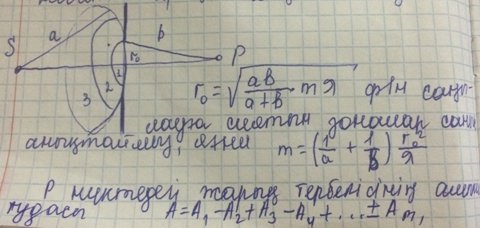 a b
S r₀ P
3 2 1
r₀ = √(ab/(a+b) mλ) ф-ін саңы-
лауға сиятын зоналар санын
анықтаймыз, яғни m = (1/a + 1/b) r₀²/λ
P нүктедегі жарық тербелісінің ампли-
тудасы A = A₁ - A₂ + A₃ - A₄ + ... ± Aₘ,